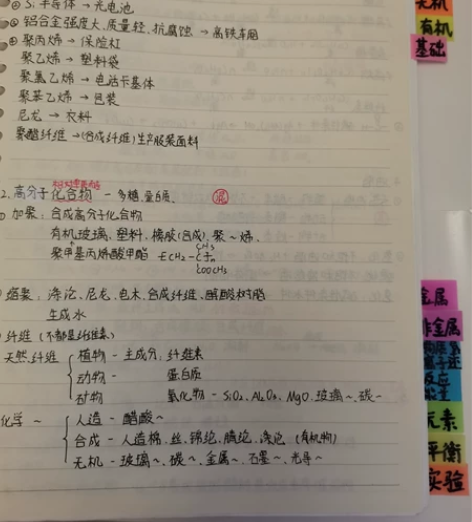 ④ Si 半导体 → 光电池
⑤ 铝合金强度大、质量轻、抗腐蚀 → 高铁车厢
⑥ 聚丙烯 → 保险杠
聚乙烯 → 塑料袋
聚氯乙烯 → 电话卡基体
聚苯乙烯 → 包装
尼龙 → 衣料
聚酯纤维 → (合成纤维)生产服装面料
2. 高分子化合物 — 多糖、蛋白质 混
加聚: 合成高分子化合物
有机玻璃、塑料、橡胶(合成)、聚~烯
聚甲基丙烯酸甲酯
CH3
COOCH3
缩聚: 涤沦、尼龙、电木、合成纤维、醇酸树脂
生成水
纤维 (不都是纤维素)
天然纤维
植物 - 主成分: 纤维素
动物 - 蛋白质
矿物 氧化物 - SiO2、Al2O3、MgO、玻璃~、碳~
化学 ~
人造 - 醋酸 ~
合成 - 人造棉、丝、锦纶、腈纶、涤沦 (有机物)
无机 - 玻璃~、碳~、金属~、石墨~、光导~
无机
有机
基础
金属
非金属
元素
平衡
实验